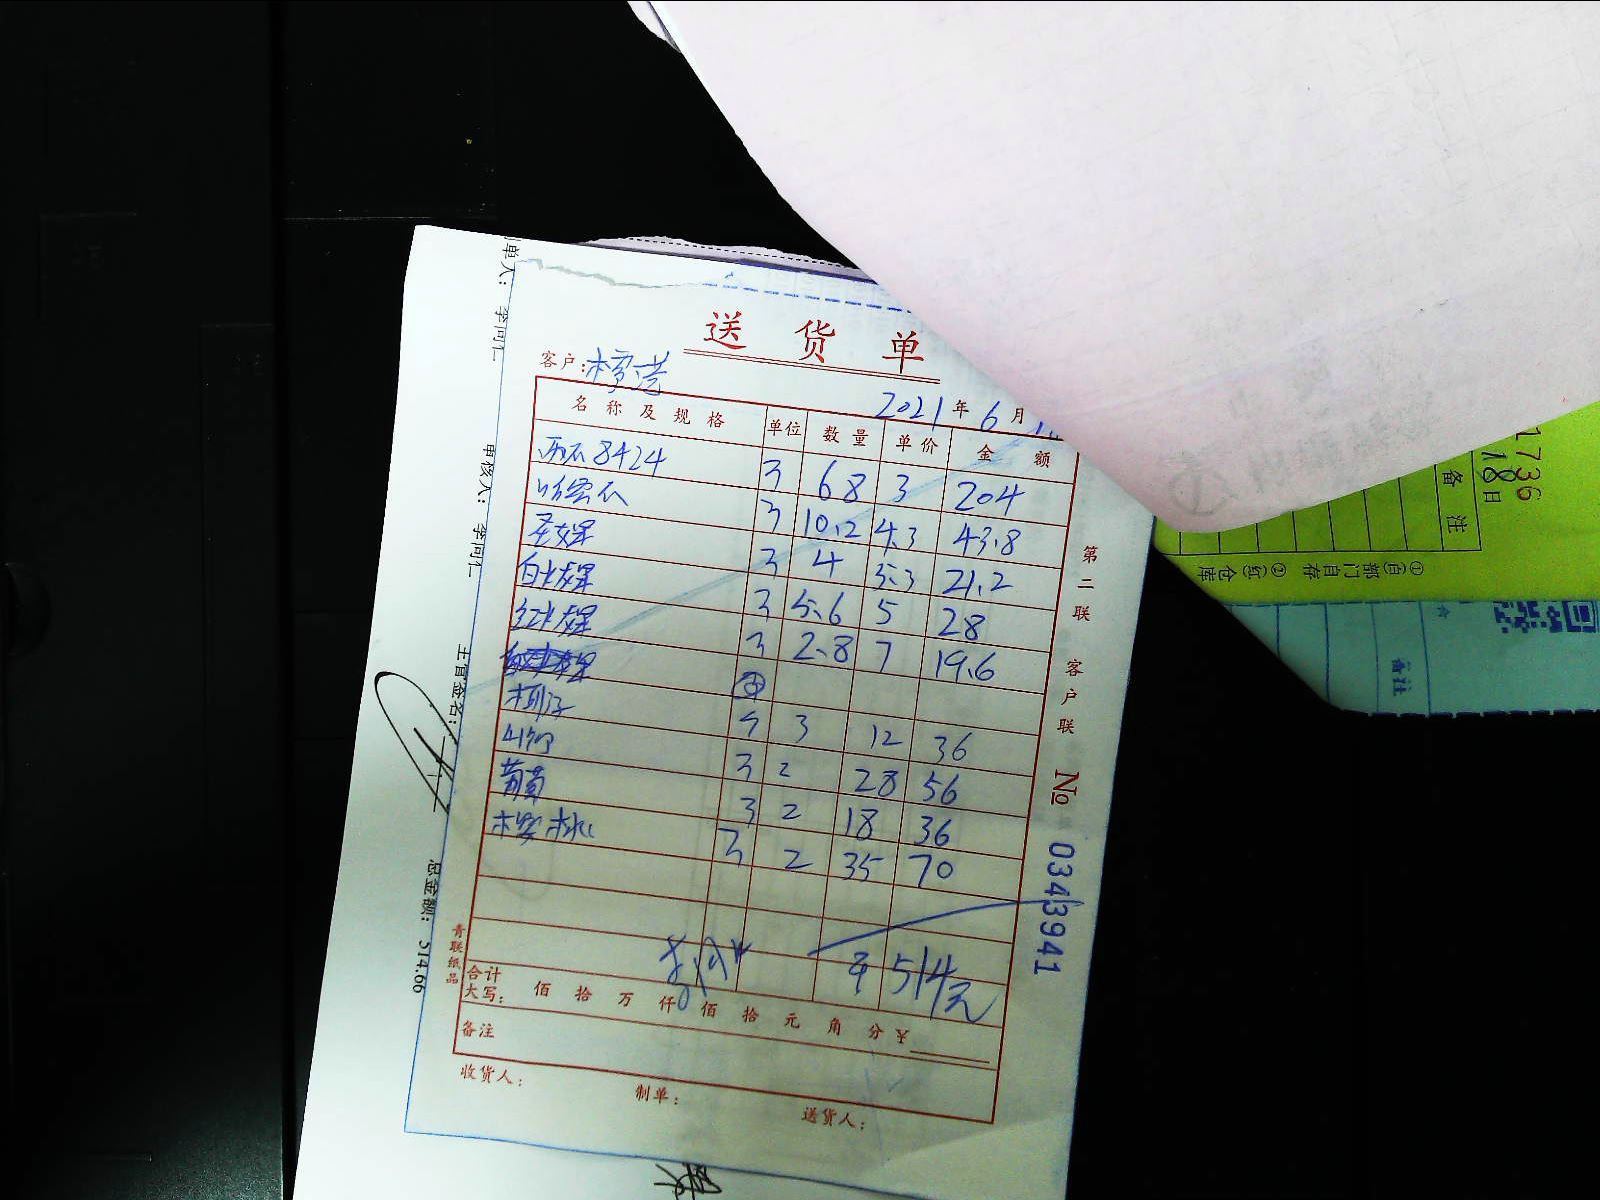 送货单
客户:
2021年6月
名称及规格 单位 数量 单价 金额
西瓜8424 斤 68 3 204
哈密瓜 斤 10.2 4.3 43.8
圣女果 斤 4 5.3 21.2
白火龙果 斤 5.6 5 28
红火龙果 斤 2.8 7 19.6
椰子 个 3 12 36
山竹 斤 2 28 56
葡萄 斤 2 18 36
樱桃 斤 2 35 70
514元
合计
大写: 佰 拾 万 仟 佰 拾 元 角 分 ¥
备注
收货人: 制单: 送货人:
第二联 客户联 № 0343941
青联纸品
单人: 学同仁
审核人: 学同仁
主官签名:
总金额: 514.66
1736
18日
备注
①(白)部门自存 ②(红)仓库
备注